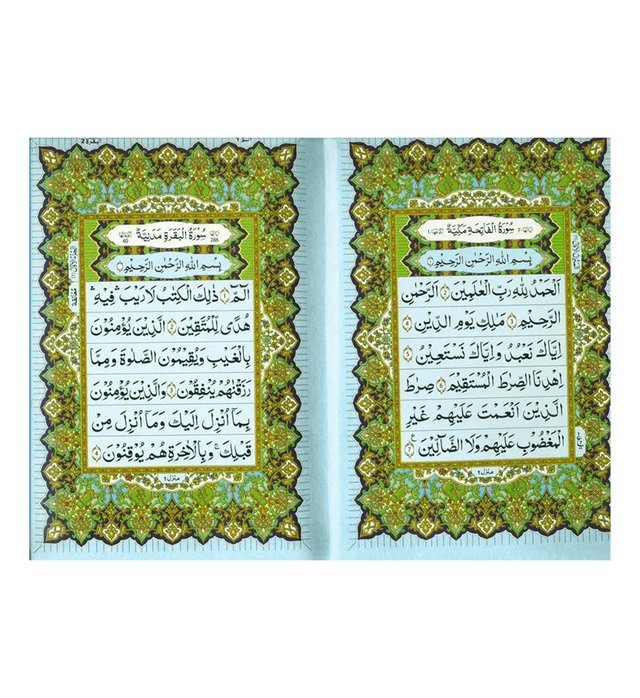 سُوْرَةُ الْفَاتِحَةِ مَكِّيَّةٌ
بِسْمِ اللّٰهِ الرَّحْمٰنِ الرَّحِيْمِ
اَلْحَمْدُ لِلّٰهِ رَبِّ الْعٰلَمِيْنَ ۙ﴿۱﴾ الرَّحْمٰنِ
الرَّحِيْمِ ۙ﴿۲﴾ مٰلِكِ يَوْمِ الدِّيْنِ ؕ﴿۳﴾
اِيَّاكَ نَعْبُدُ وَ اِيَّاكَ نَسْتَعِيْنُ ؕ﴿۴﴾
اِهْدِنَا الصِّرَاطَ الْمُسْتَقِيْمَ ۙ﴿۵﴾ صِرَاطَ
الَّذِيْنَ اَنْعَمْتَ عَلَيْهِمْ غَيْرِ
الْمَغْضُوْبِ عَلَيْهِمْ وَلَا الضَّآلِّيْنَ
منزل ۱
البقرة ۲
سُوْرَةُ الْبَقَرَةِ مَدَنِيَّةٌ
286
40
بِسْمِ اللّٰهِ الرَّحْمٰنِ الرَّحِيْمِ
الٓمّٓ ۚ﴿۱﴾ ذٰلِكَ الْكِتٰبُ لَا رَيْبَ ۛ فِيْهِ ۛ
هُدًى لِّلْمُتَّقِيْنَ ۙ﴿۲﴾ الَّذِيْنَ يُؤْمِنُوْنَ
بِالْغَيْبِ وَيُقِيْمُوْنَ الصَّلٰوةَ وَمِمَّا
رَزَقْنٰهُمْ يُنْفِقُوْنَ ۙ﴿۳﴾ وَالَّذِيْنَ يُؤْمِنُوْنَ
بِمَآ اُنْزِلَ اِلَيْكَ وَمَآ اُنْزِلَ مِنْ
قَبْلِكَ ۚ وَبِالْاٰخِرَةِ هُمْ يُوْقِنُوْنَ ؕ﴿۴﴾
منزل ۱